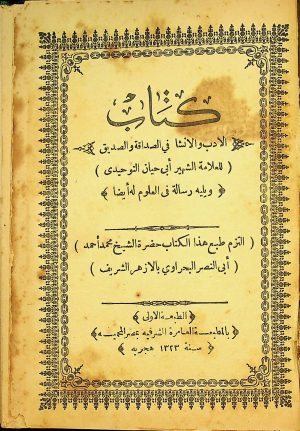 كتاب
الادب والانشا في الصداقة والصديق
( للعلامة الشهير أبي حيان التوحيدي )
﴿ ويليه رسالة في العلوم له أيضا ﴾
( التزم طبع هذا الكتاب حضرة الشيخ محمد أحمد )
( أبي النصر البحراوي بالازهر الشريف )
﴿ الطبعة الاولى ﴾
﴿ بالمطبعة العامرة الشرفيه بمصر المحميه ﴾
﴿ سنة ١٣٢٣ هجريه ﴾